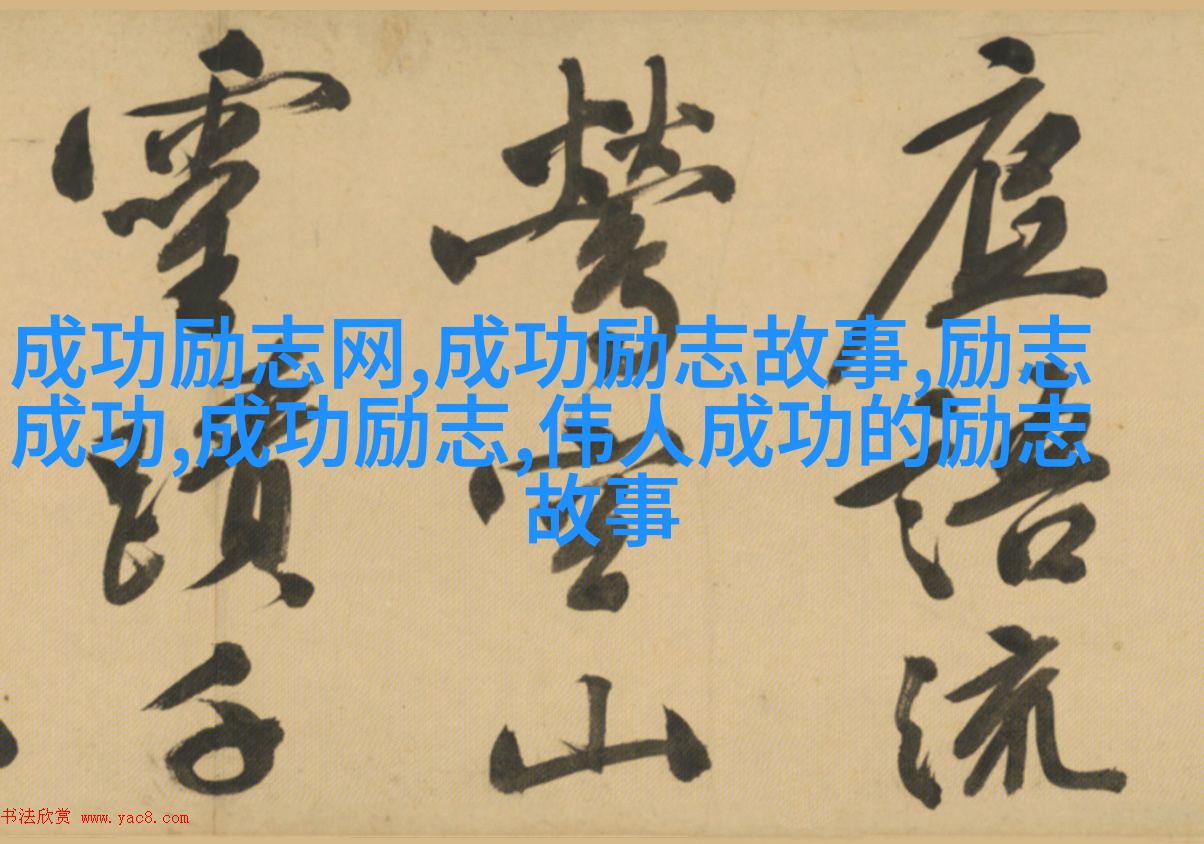 成功励志网,成功励志故事,励志
成功,成功励志,伟人成功的励志
故事
語流
空山
靈蹟千
书法欣赏 www.yac8.com